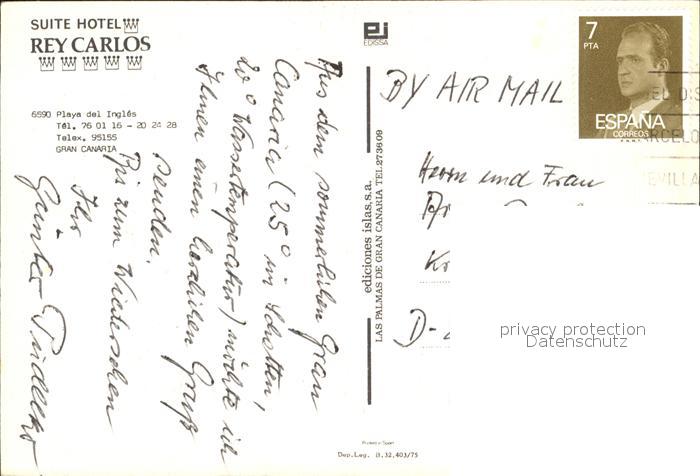 SUITE HOTEL
REY CARLOS
6590 Playa del Inglés
Tél. 76 01 16 - 20 24 28
Telex. 95155
GRAN CANARIA
Aus dem sommerlichen Gran
Canaria (25° im Schatten,
20° Wassertemperatur) möchte ich
Ihnen einen herzlichen Gruß
senden.
Bis zum Wiedersehen
Ihr
Günter
EDISSA
ediciones islas, s.a.
LAS PALMAS DE GRAN CANARIA TEL 273609
Printed in Spain
Dep. Leg. B. 32,403/75
BY AIR MAIL
7
PTA
ESPAÑA
CORREOS
Herrn und Frau
D-
privacy protection
Datenschutz